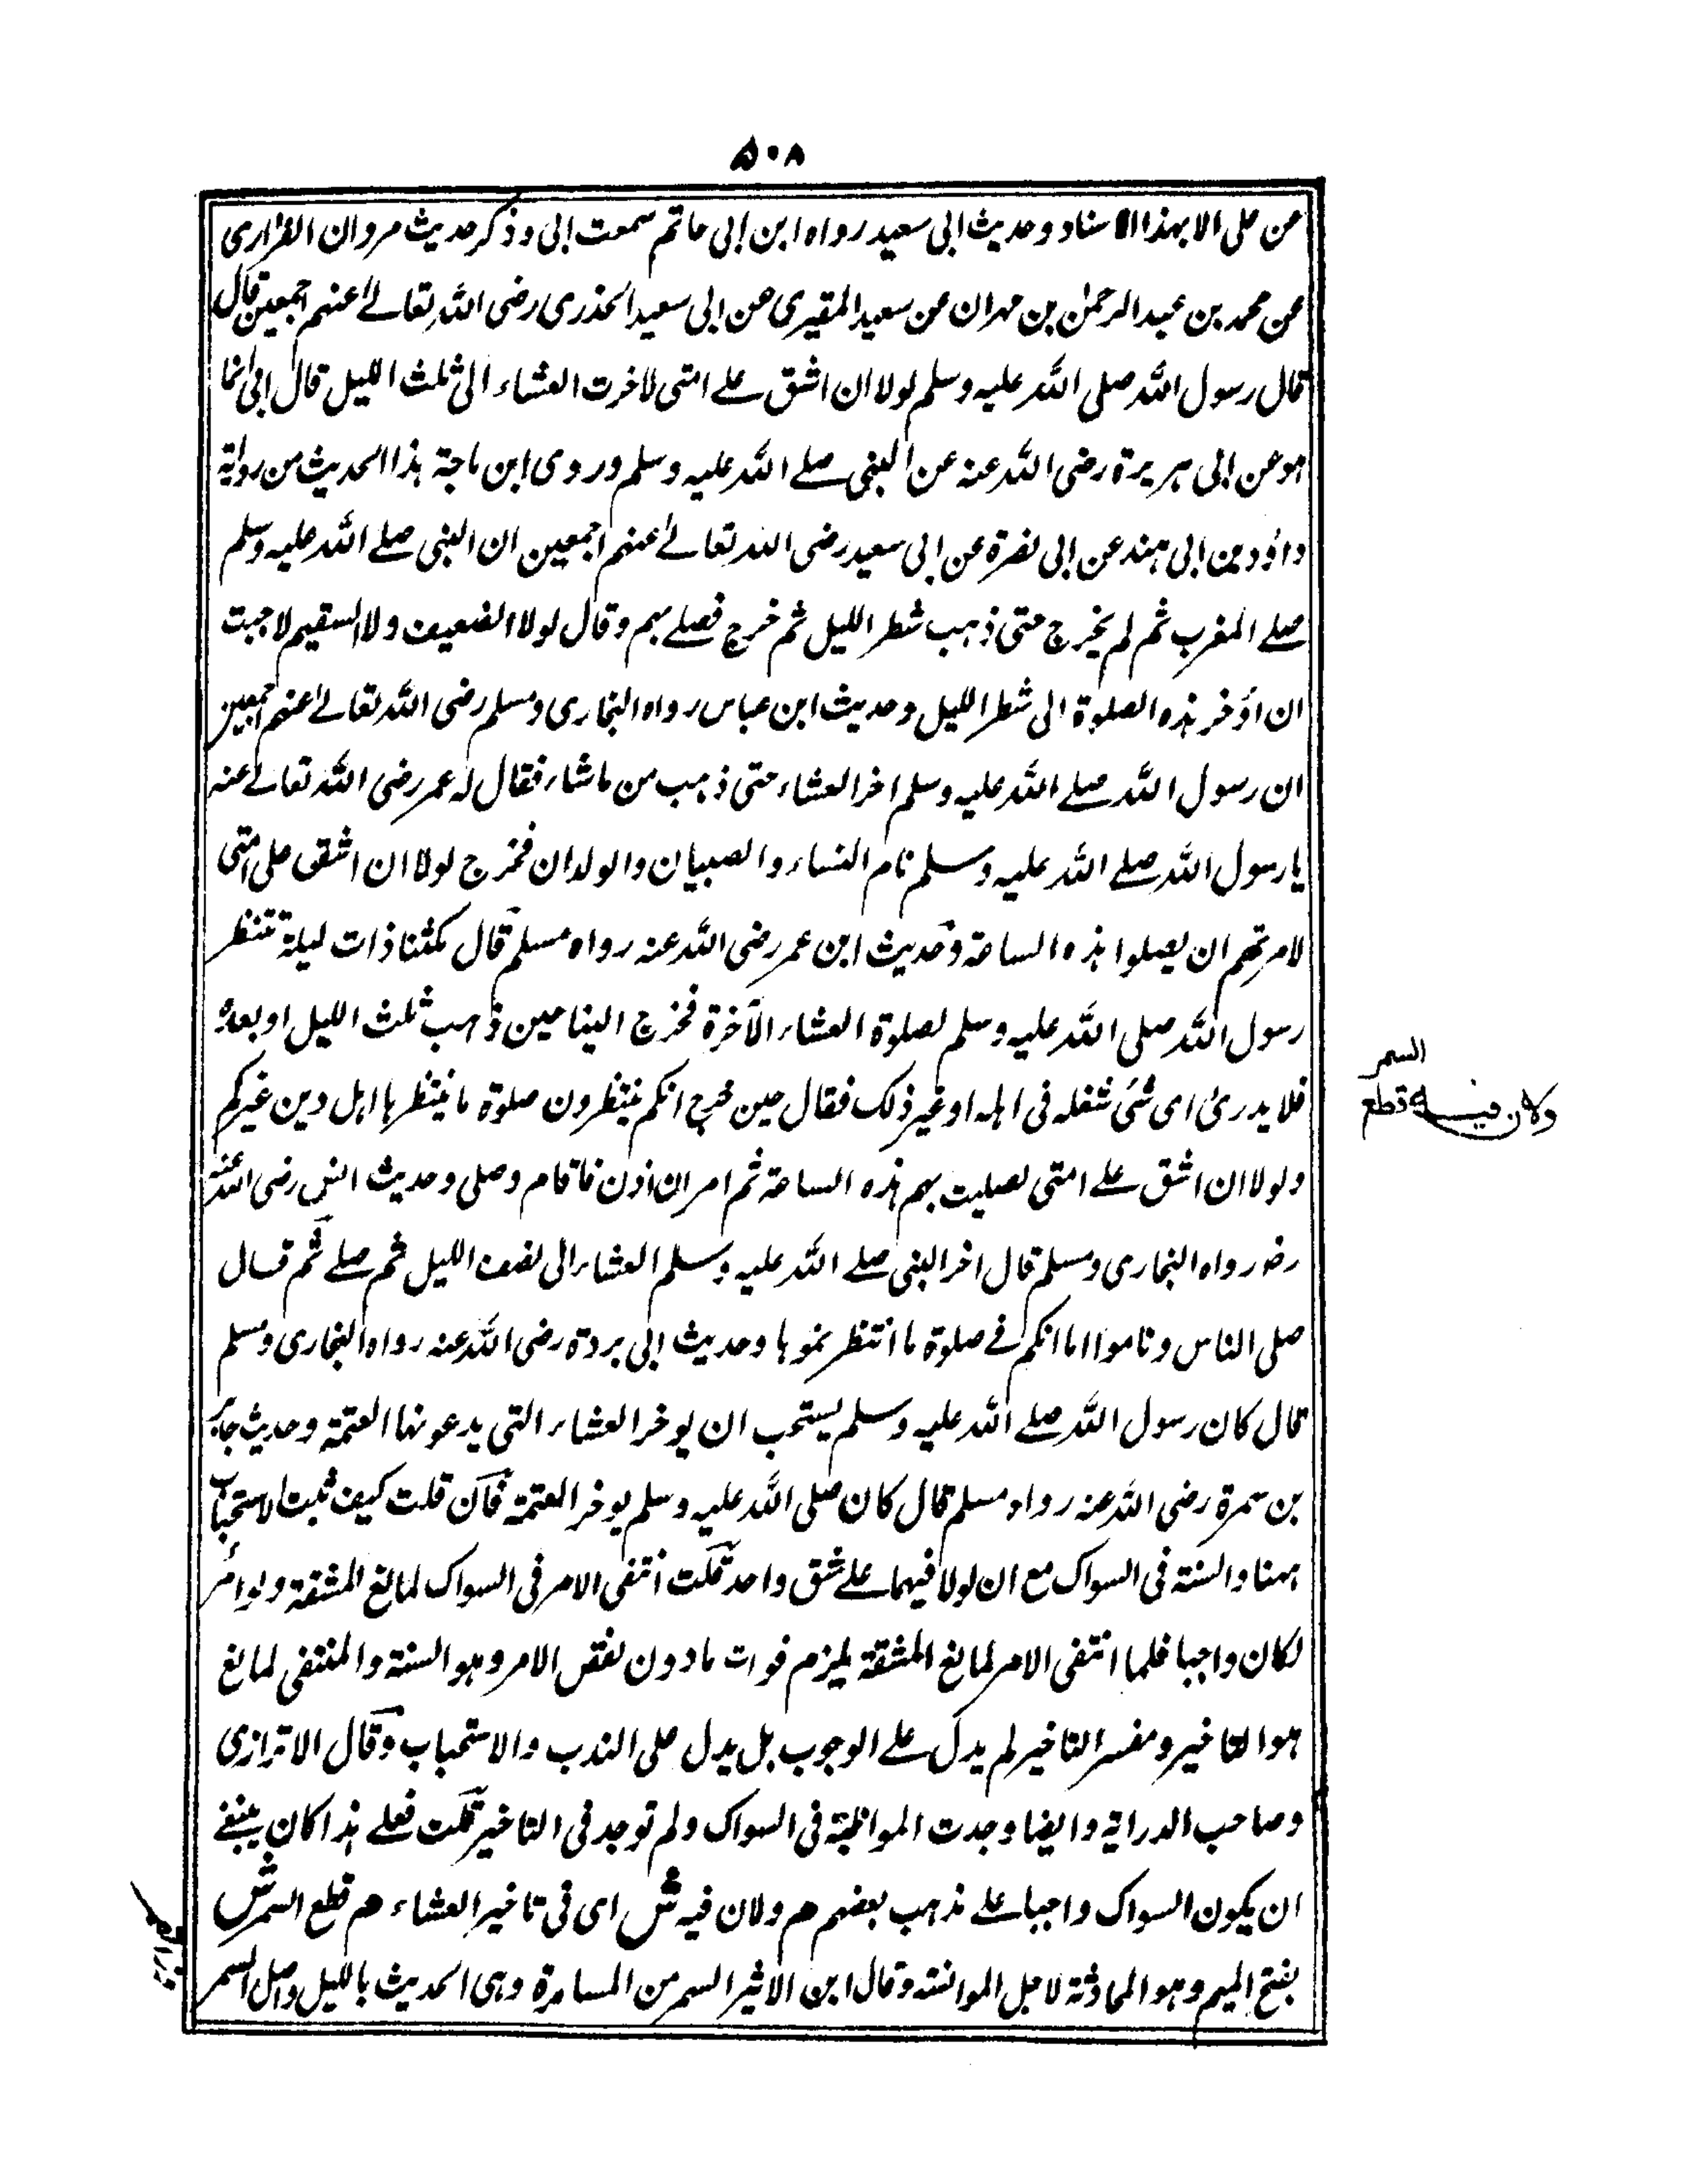 ۵۰۸
عن علی الا بهذا الاسناد وحدیث ابی سعید رواه ابن ابی حاتم سمعت ابی وذکر حدیث مروان الفزاری
عن محمد بن عبد الرحمٰن بن مهران عن سعید المقبری عن ابی سعید الخدری رضی الله تعالے عنهم اجمعین قال
قال رسول الله صلی الله علیه وسلم لولا ان اشق علے امتی لاخرت العشاء الی ثلث اللیل قال ابی انما
هو عن ابی هریرة رضی الله عنه عن النبی صلے الله علیه وسلم وروی ابن ماجة هذا الحدیث من روایة
داؤد بن ابی هند عن ابی نضرة عن ابی سعید رضی الله تعالے عنهم اجمعین ان النبی صلے الله علیه وسلم
صلے المغرب ثم لم یخرج حتی ذهب شطر اللیل ثم خرج فصلے بهم وقال لولا الضعیف ولا السقیم لاحببت
ان اؤخر هذه الصلوة الی شطر اللیل وحدیث ابن عباس رواه البخاری ومسلم رضی الله تعالے عنهم اجمعین
ان رسول الله صلے الله علیه وسلم اخر العشاء حتی ذهب من ماشاء فقال له عمر رضی الله تعالے عنه
یا رسول الله صلے الله علیه وسلم نام النساء والصبیان والولدان فخرج لولا ان اشق علی امتی
لامرتهم ان یصلوا هذه الساعة وحدیث ابن عمر رضی الله عنه رواه مسلم قال مکثنا ذات لیلة ننتظر
رسول الله صلی الله علیه وسلم لصلوة العشاء الآخرة فخرج الینا حین ذهب ثلث اللیل او بعده
فلا یدری ای شئ شغله فی اهله او غیر ذلک فقال حین خرج انکم تنتظرون صلوة ما ینتظرها اهل دین غیرکم
ولولا ان اشق علے امتی لصلیت بهم هذه الساعة ثم امر ان اذن فاقام وصلی وحدیث انس رضی الله عنه
رضـ رواه البخاری ومسلم قال اخر النبی صلے الله علیه وسلم العشاء الی نصف اللیل ثم صلے ثم قال
صلی الناس وناموا اما انکم فے صلوة ما انتظرتموها وحدیث ابی بردة رضی الله عنه رواه البخاری ومسلم
قال کان رسول الله صلے الله علیه وسلم یستحب ان یوخر العشاء التی یدعونها العتمة وحدیث جابر
بن سمرة رضی الله عنه رواه مسلم قال کان صلی الله علیه وسلم یوخر العتمة فان قلت کیف ثبت الاستحباب
ههنا والسنة فی السواک مع ان لولا فیهما علے شق واحد قلت انتفی الامر فی السواک لمانع المشقة ولو امر
لکان واجبا فلما انتفی الامر لمانع المشقة یلزم فوات مادون نقص الامر وهو السنة والمنتفی لمانع
هو التاخیر ومفسر التاخیر لم یدل علے الوجوب بل یدل علی الندب والاستحباب وقال الاترازی
وصاحب الدرایة وایضا وجدت المواظبة فی السواک ولم توجد فی التاخیر قلت فعلے هذا کان ینبغے
ان یکون السواک واجبا علے مذهب بعضهم م ولان فیه ش ای فی تاخیر العشاء م قطع السمر ش
بفتح المیم وهو المحادثة لاجل الموانسة وقال ابن الاثیر السمر من المسامرة وهی الحدیث باللیل واصل السمر
ولان فیه قطع
السمر